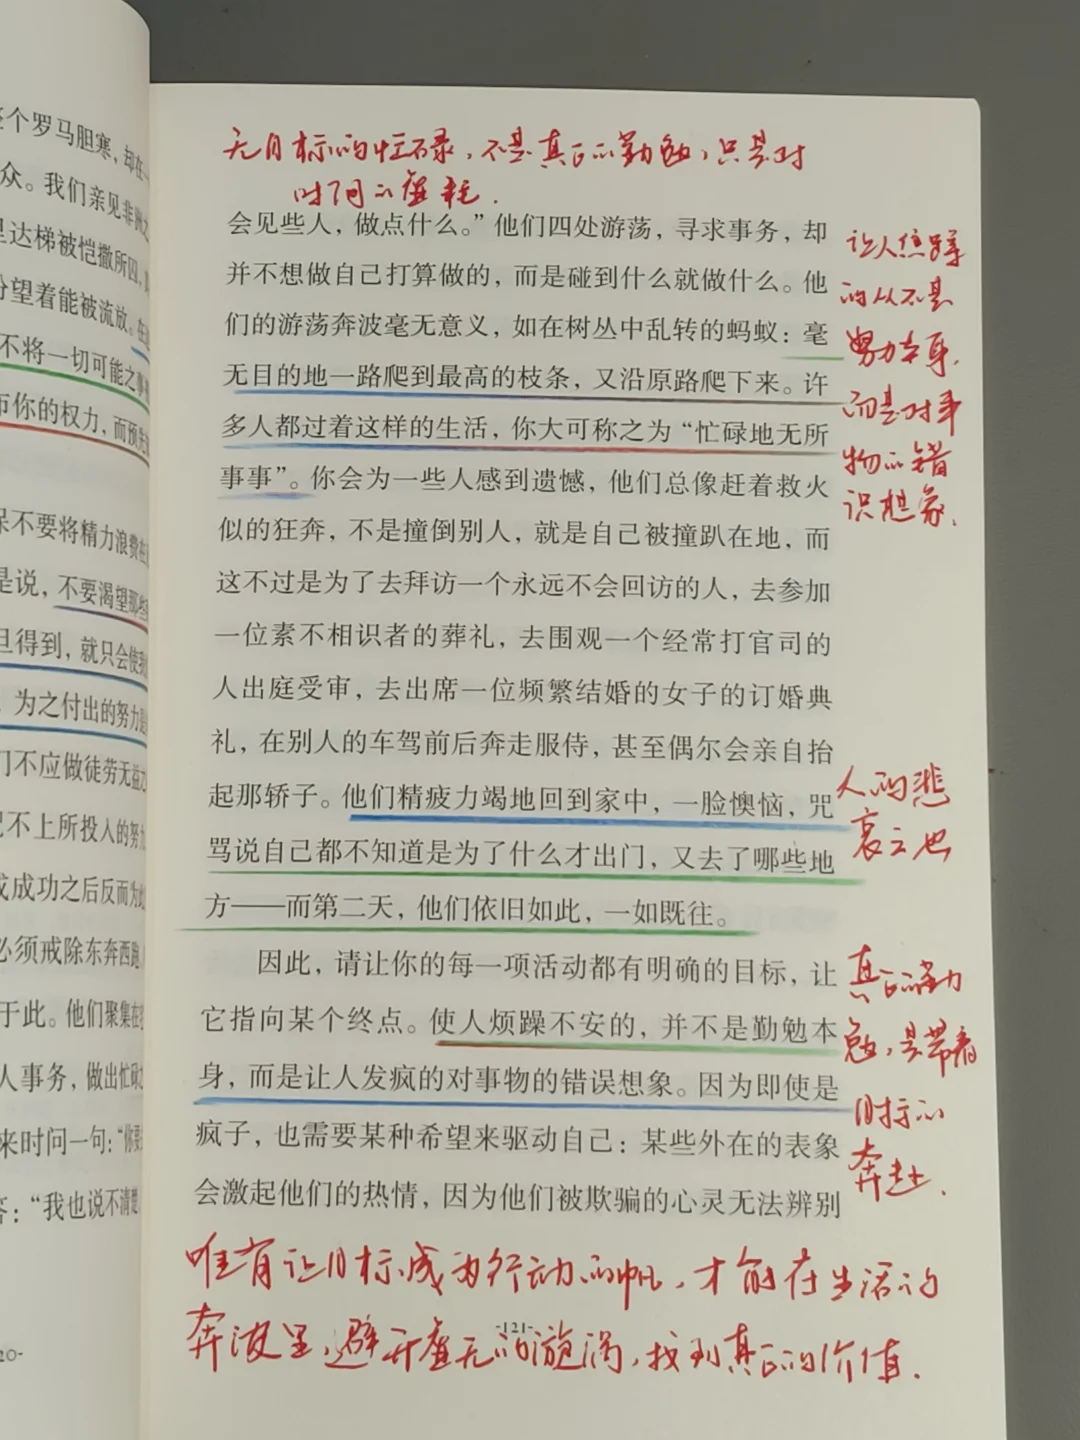 整个罗马胆寒，却在一
众。我们亲见非洲之
里达梯被恺撒所囚，
盼望着能被流放。在
不将一切可能之事
布你的权力，而预先
保不要将精力浪费在
是说，不要渴望那些
旦得到，就只会使我
为之付出的努力是
们不应做徒劳无益
配不上所投入的努
或成功之后反而为
必须戒除东奔西跑
于此。他们聚集在
人事务，做出忙碌
来时问一句：“你要
答：“我也说不清楚
20-
无目标的忙碌，不是真正的勤勉，只是对
时间的虚耗.
会见些人，做点什么。”他们四处游荡，寻求事务，却
并不想做自己打算做的，而是碰到什么就做什么。他
们的游荡奔波毫无意义，如在树丛中乱转的蚂蚁：毫
无目的地一路爬到最高的枝条，又沿原路爬下来。许
多人都过着这样的生活，你大可称之为“忙碌地无所
事事”。你会为一些人感到遗憾，他们总像赶着救火
似的狂奔，不是撞倒别人，就是自己被撞趴在地，而
这不过是为了去拜访一个永远不会回访的人，去参加
一位素不相识者的葬礼，去围观一个经常打官司的
人出庭受审，去出席一位频繁结婚的女子的订婚典
礼，在别人的车驾前后奔走服侍，甚至偶尔会亲自抬
起那轿子。他们精疲力竭地回到家中，一脸懊恼，咒
骂说自己都不知道是为了什么才出门，又去了哪些地
方——而第二天，他们依旧如此，一如既往。
因此，请让你的每一项活动都有明确的目标，让
它指向某个终点。使人烦躁不安的，并不是勤勉本
身，而是让人发疯的对事物的错误想象。因为即使是
疯子，也需要某种希望来驱动自己：某些外在的表象
会激起他们的热情，因为他们被欺骗的心灵无法辨别
让人焦躁
的从不是
努力本身，
而是对事
物的错
识想象.
人的悲
哀之也
真正的勤
勉，是带着
目标的
奔赴.
唯有让目标成为行动的帆，才能在生活的
奔波里，避开虚无的漩涡，找到真正的价值.
-121-